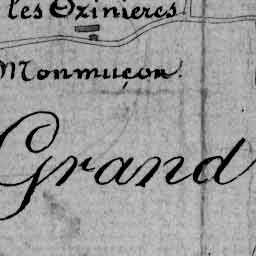 les Ozinieres
Monmuçon
Grand